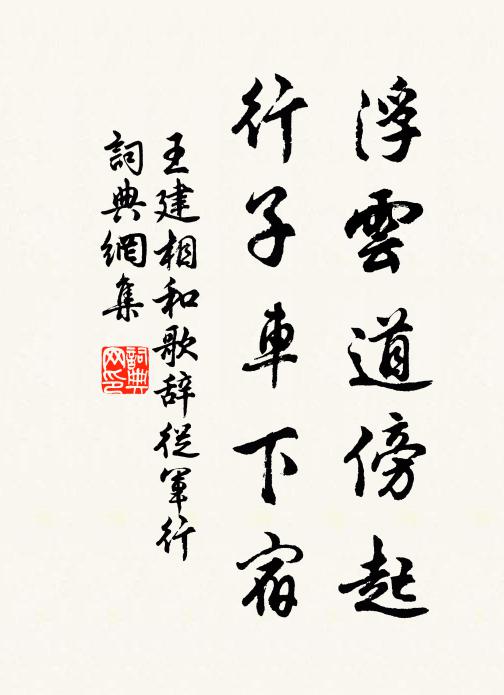 浮雲道傍起
行子車下宿
王建相和歌辞從軍行
詞典網集
詞典网印